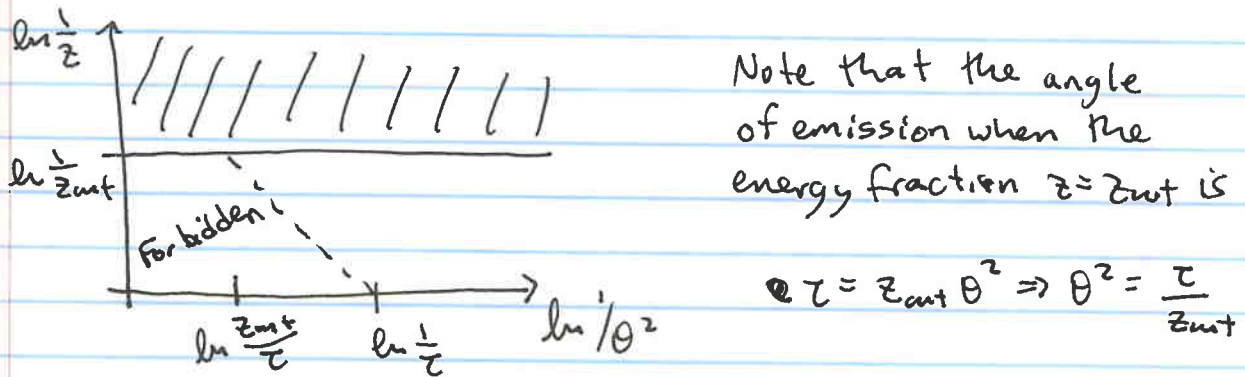 ln 1/z
ln 1/z_cut
Forbidden
ln z_cut/τ
ln 1/τ
ln 1/θ²
Note that the angle
of emission when the
energy fraction z = z_cut is
τ = z_cut θ² ⇒ θ² = τ/z_cut